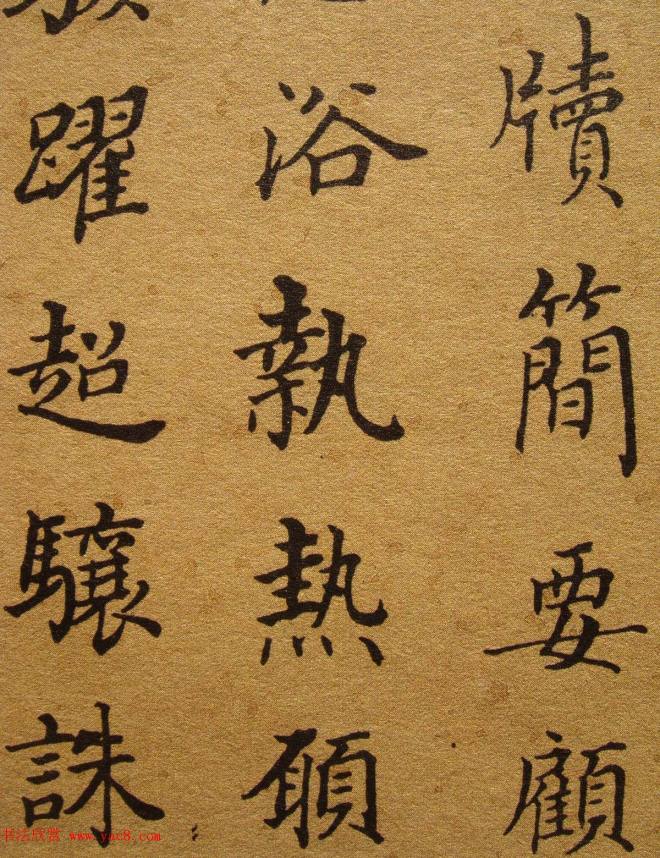 牘簡要顧
浴執熱願
躍超驤誅
书法欣赏 www.yac8.com